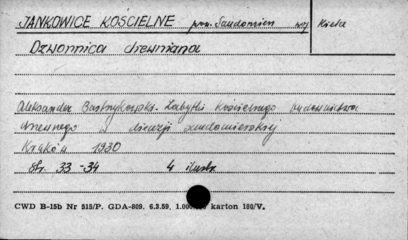 JANKOWICE KOŚCIELNE pow. Sandomierz woj Kielce
Dzwonnica drewniana
Aleksander Bastrzykowski - Zabytki kościelnego budownictwa
drewnianego w diecezji sandomierskiej
Kraków 1930
Str. 33-34 4 ilustr.
CWD B-15b Nr 515/P. GDA-809. 6.3.59. 1.000 karton 180/V.